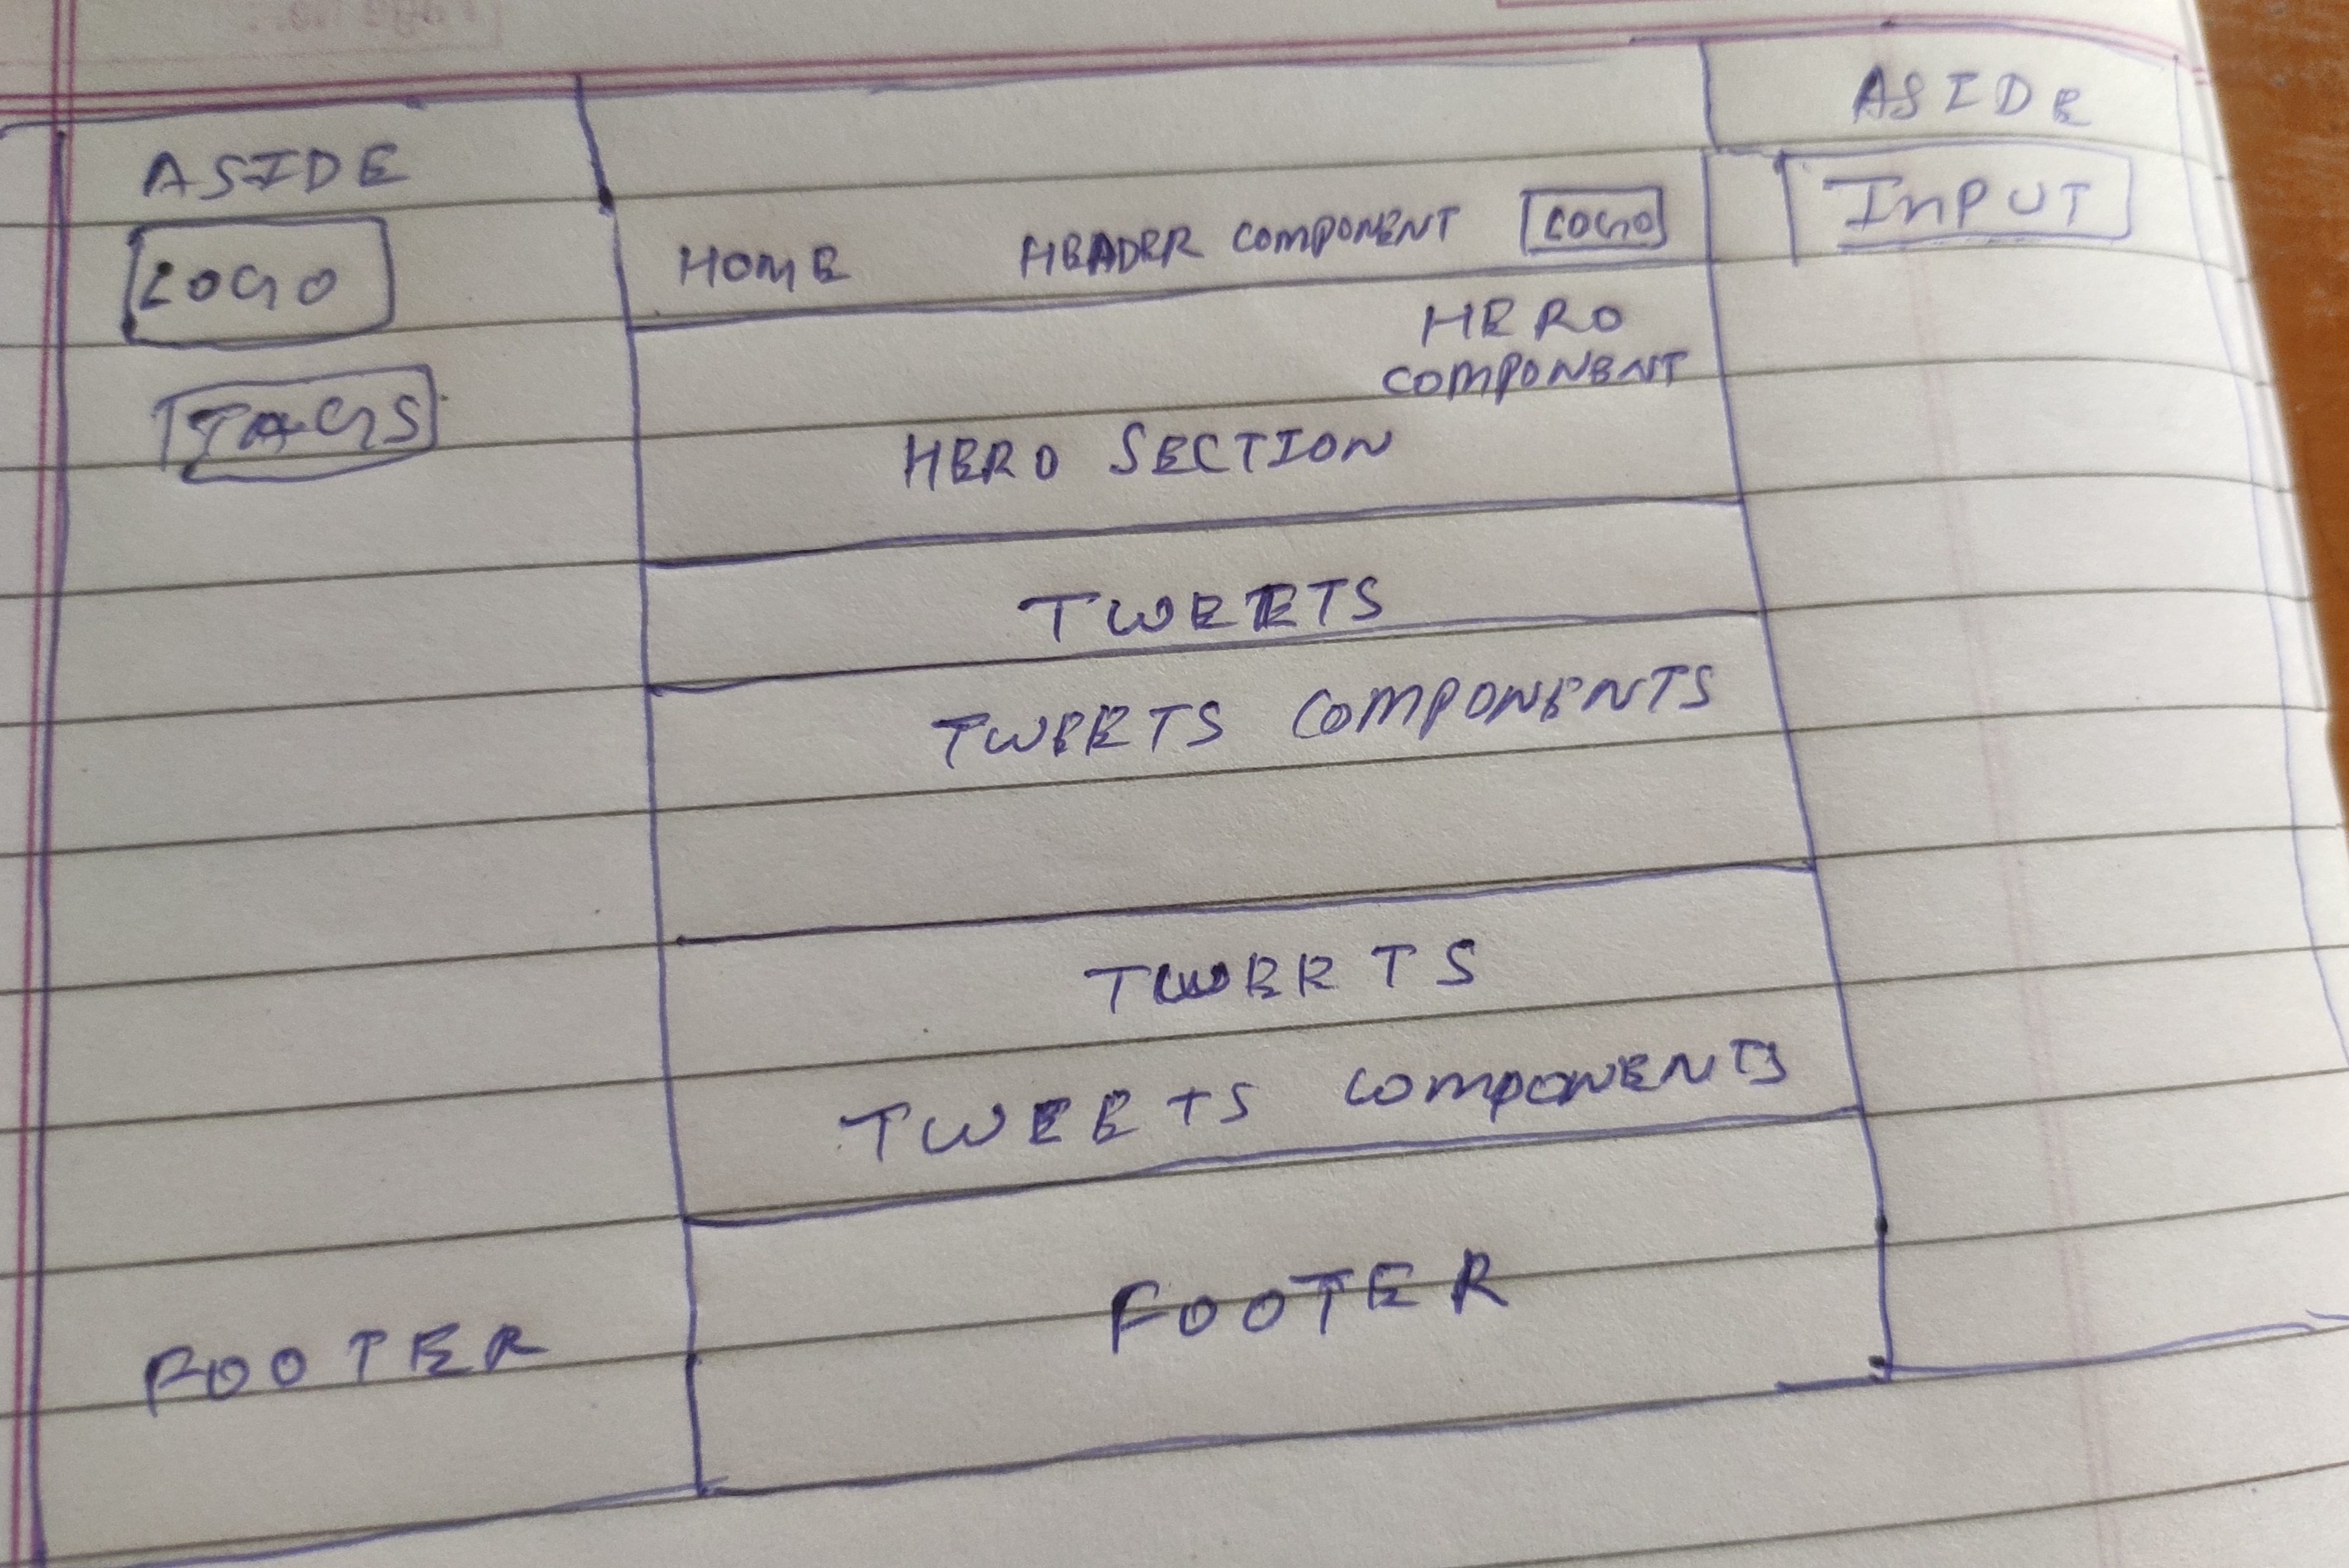 ASIDE
LOGO
TAGS
FOOTER
HOME HEADER COMPONENT LOGO
HERO
COMPONENT
HERO SECTION
TWEETS
TWEETS COMPONENTS
TWEETS
TWEETS COMPONENTS
FOOTER
ASIDE
INPUT